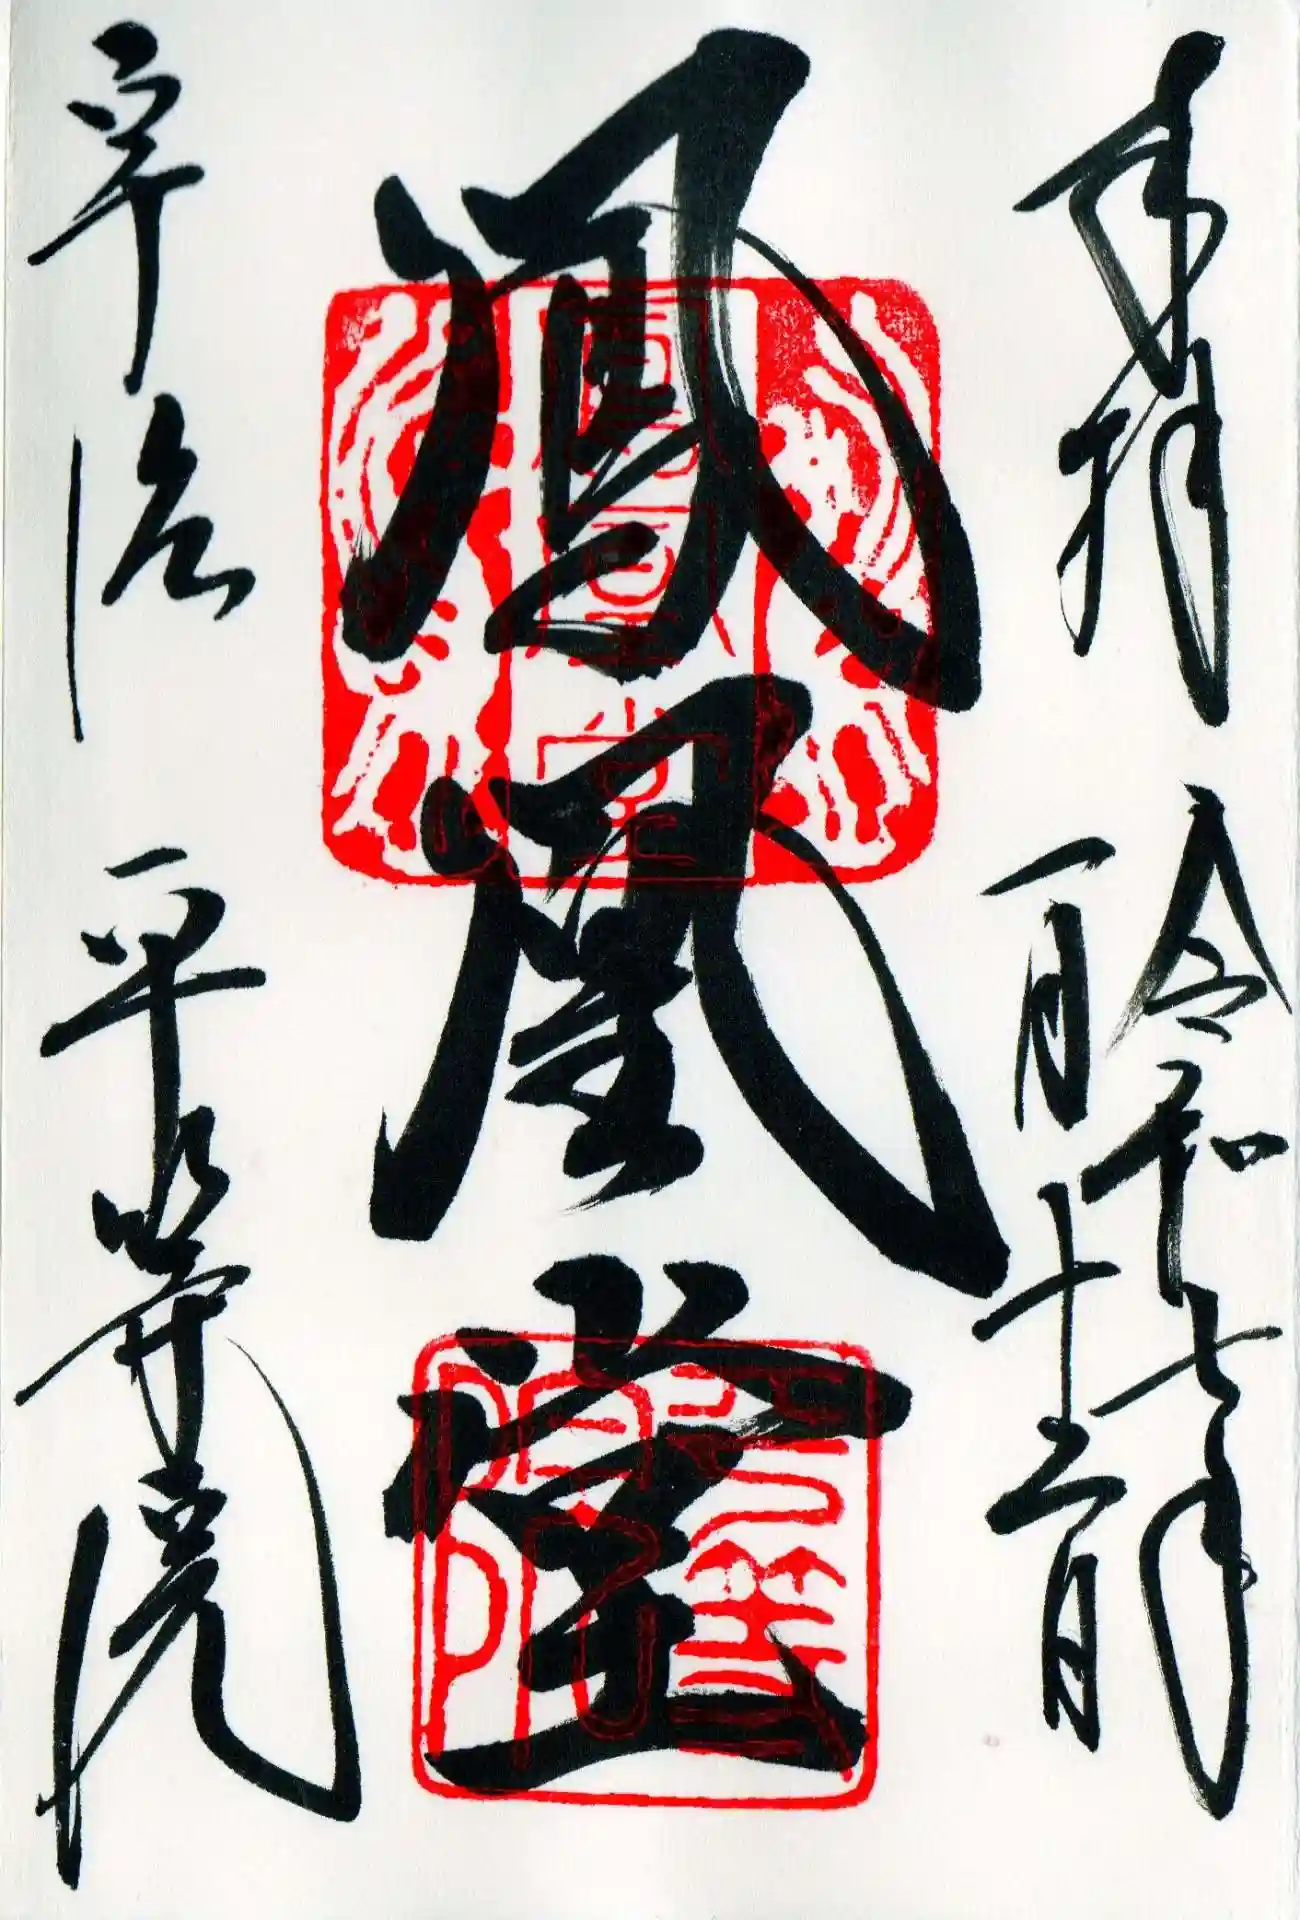 奉拝
令和七年
一月十三日
鳳凰堂
宇治 平等院